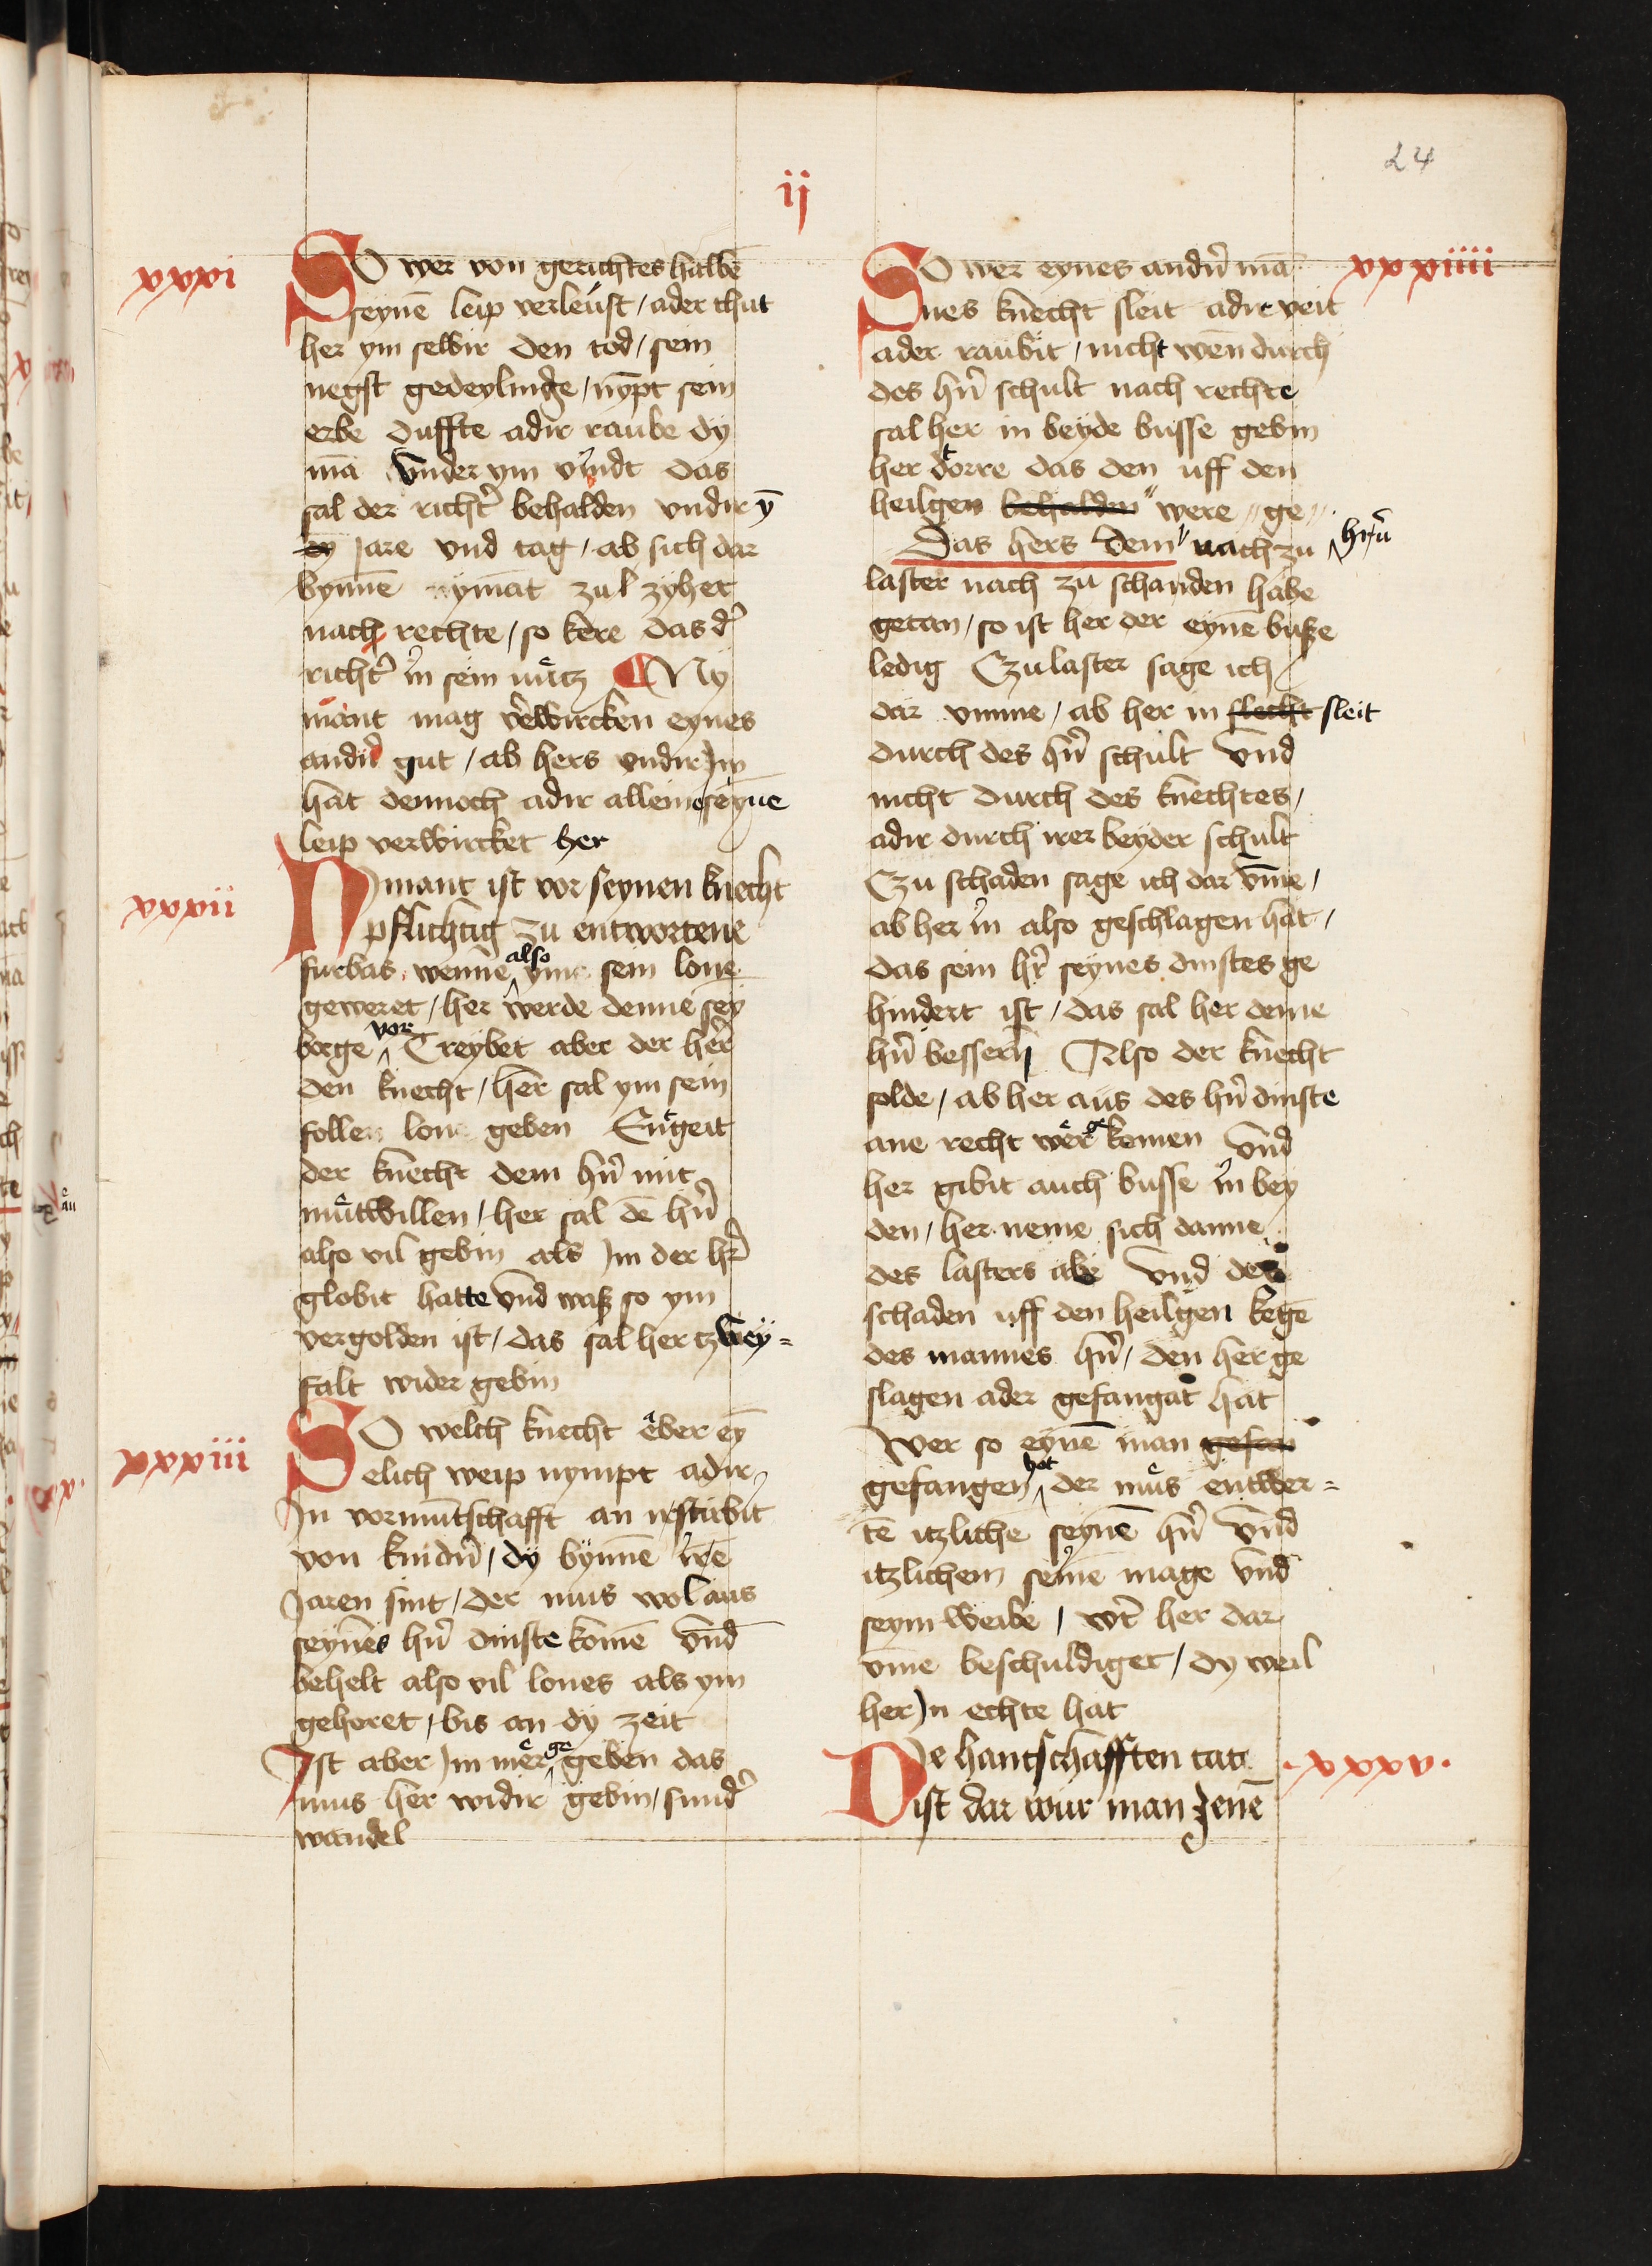 24
ij
xxxi
SO wer von gerichtes halbē
seynē leip verleust / ader thut
her ym selbir den tod / sein
negst gedeylinge / nȳpt sein
erbe duffte adir raube dy
mā vnder ym vindt das
sal der richt' behalden vndir ȳ
ey jare vnd tag / ab sich dar
bynnē nymāt zul zyher
nach rechte / so kere das d'
richt' in sein nutz Ny
mant mag v'wircken eynes
andir gut / ab hers vndir Im
hat dennoch adir allein seyne
leip verwircket her
xxxii
NJmant ist vor seynen knecht
pflichtig zu entwortene
furbas wenne also yme sein lone
geweret / her werde denne sey
borge vor Treybet aber der her'
den knecht / her sal ym sein
follen lone geben Engeit
der knecht dem hn̄ mit
mutwillen / her sal dē hn̄
also vil gebin als Im der hr̄
globit hatte vnd waß so ym
vergolden ist / das sal her tzwey=
falt wider gebin
xxxiii
SO welch knecht eber eȳ
elich weip nympt adir
In vormūtschafft an irstirbit
von kindn̄ / dy bynnē iren
Jaren sint / der mus wol aus
seynes hn̄ dinste komē vnd
behelt also vil lones als ym
gehoret / bis an dy zeit
Ist aber Im mer ge geben das
mus her widir gebin / sund'
wandel
xxxiiii
SO wer eynes andn̄ mā
nes knecht sleit adir veit
ader raubit / nicht wen durch
des hn̄ schult nach rechte
sal her in beyde busse gebin
her torre das den uff den
heilgen behalden were ge
Das hers dem nach zu hr̄n
laster nach zu schanden habe
getan / so ist her der eynē buße
ledig Czu laster sage ich
dar vmme / ab her in slecht sleit
durch des hn̄ schult vnd
nicht durch des knechtes /
adir durch irer beyder schult
Czu schaden sage ich dar vm̄e /
ab her in also geschlagen hat /
das sein hr̄ seynes dinstes ge
hindert ist / das sal her deme
hn̄ bessern Also der knecht
solde / ab her aus des hn̄ dinste
ane recht wer ge komen vnd
her gibit auch busse in bey
den / her neme sich danne
des lasters abe vnd des
schaden uff den heilgen kegē
des mannes hn̄ / den her ge
slagen ader gefangat hat
Wer so eynē man gefan
gefangen hot der mus entwer=
tē itzliche seynē hn̄ vnd
itzlichem seinē mage vnd
seym weibe / wt' her dar
vm̄e beschuldiget / dy weil
her In echte hat
xxxv
DJe hantschafften tat
ist dar wur man Jenē